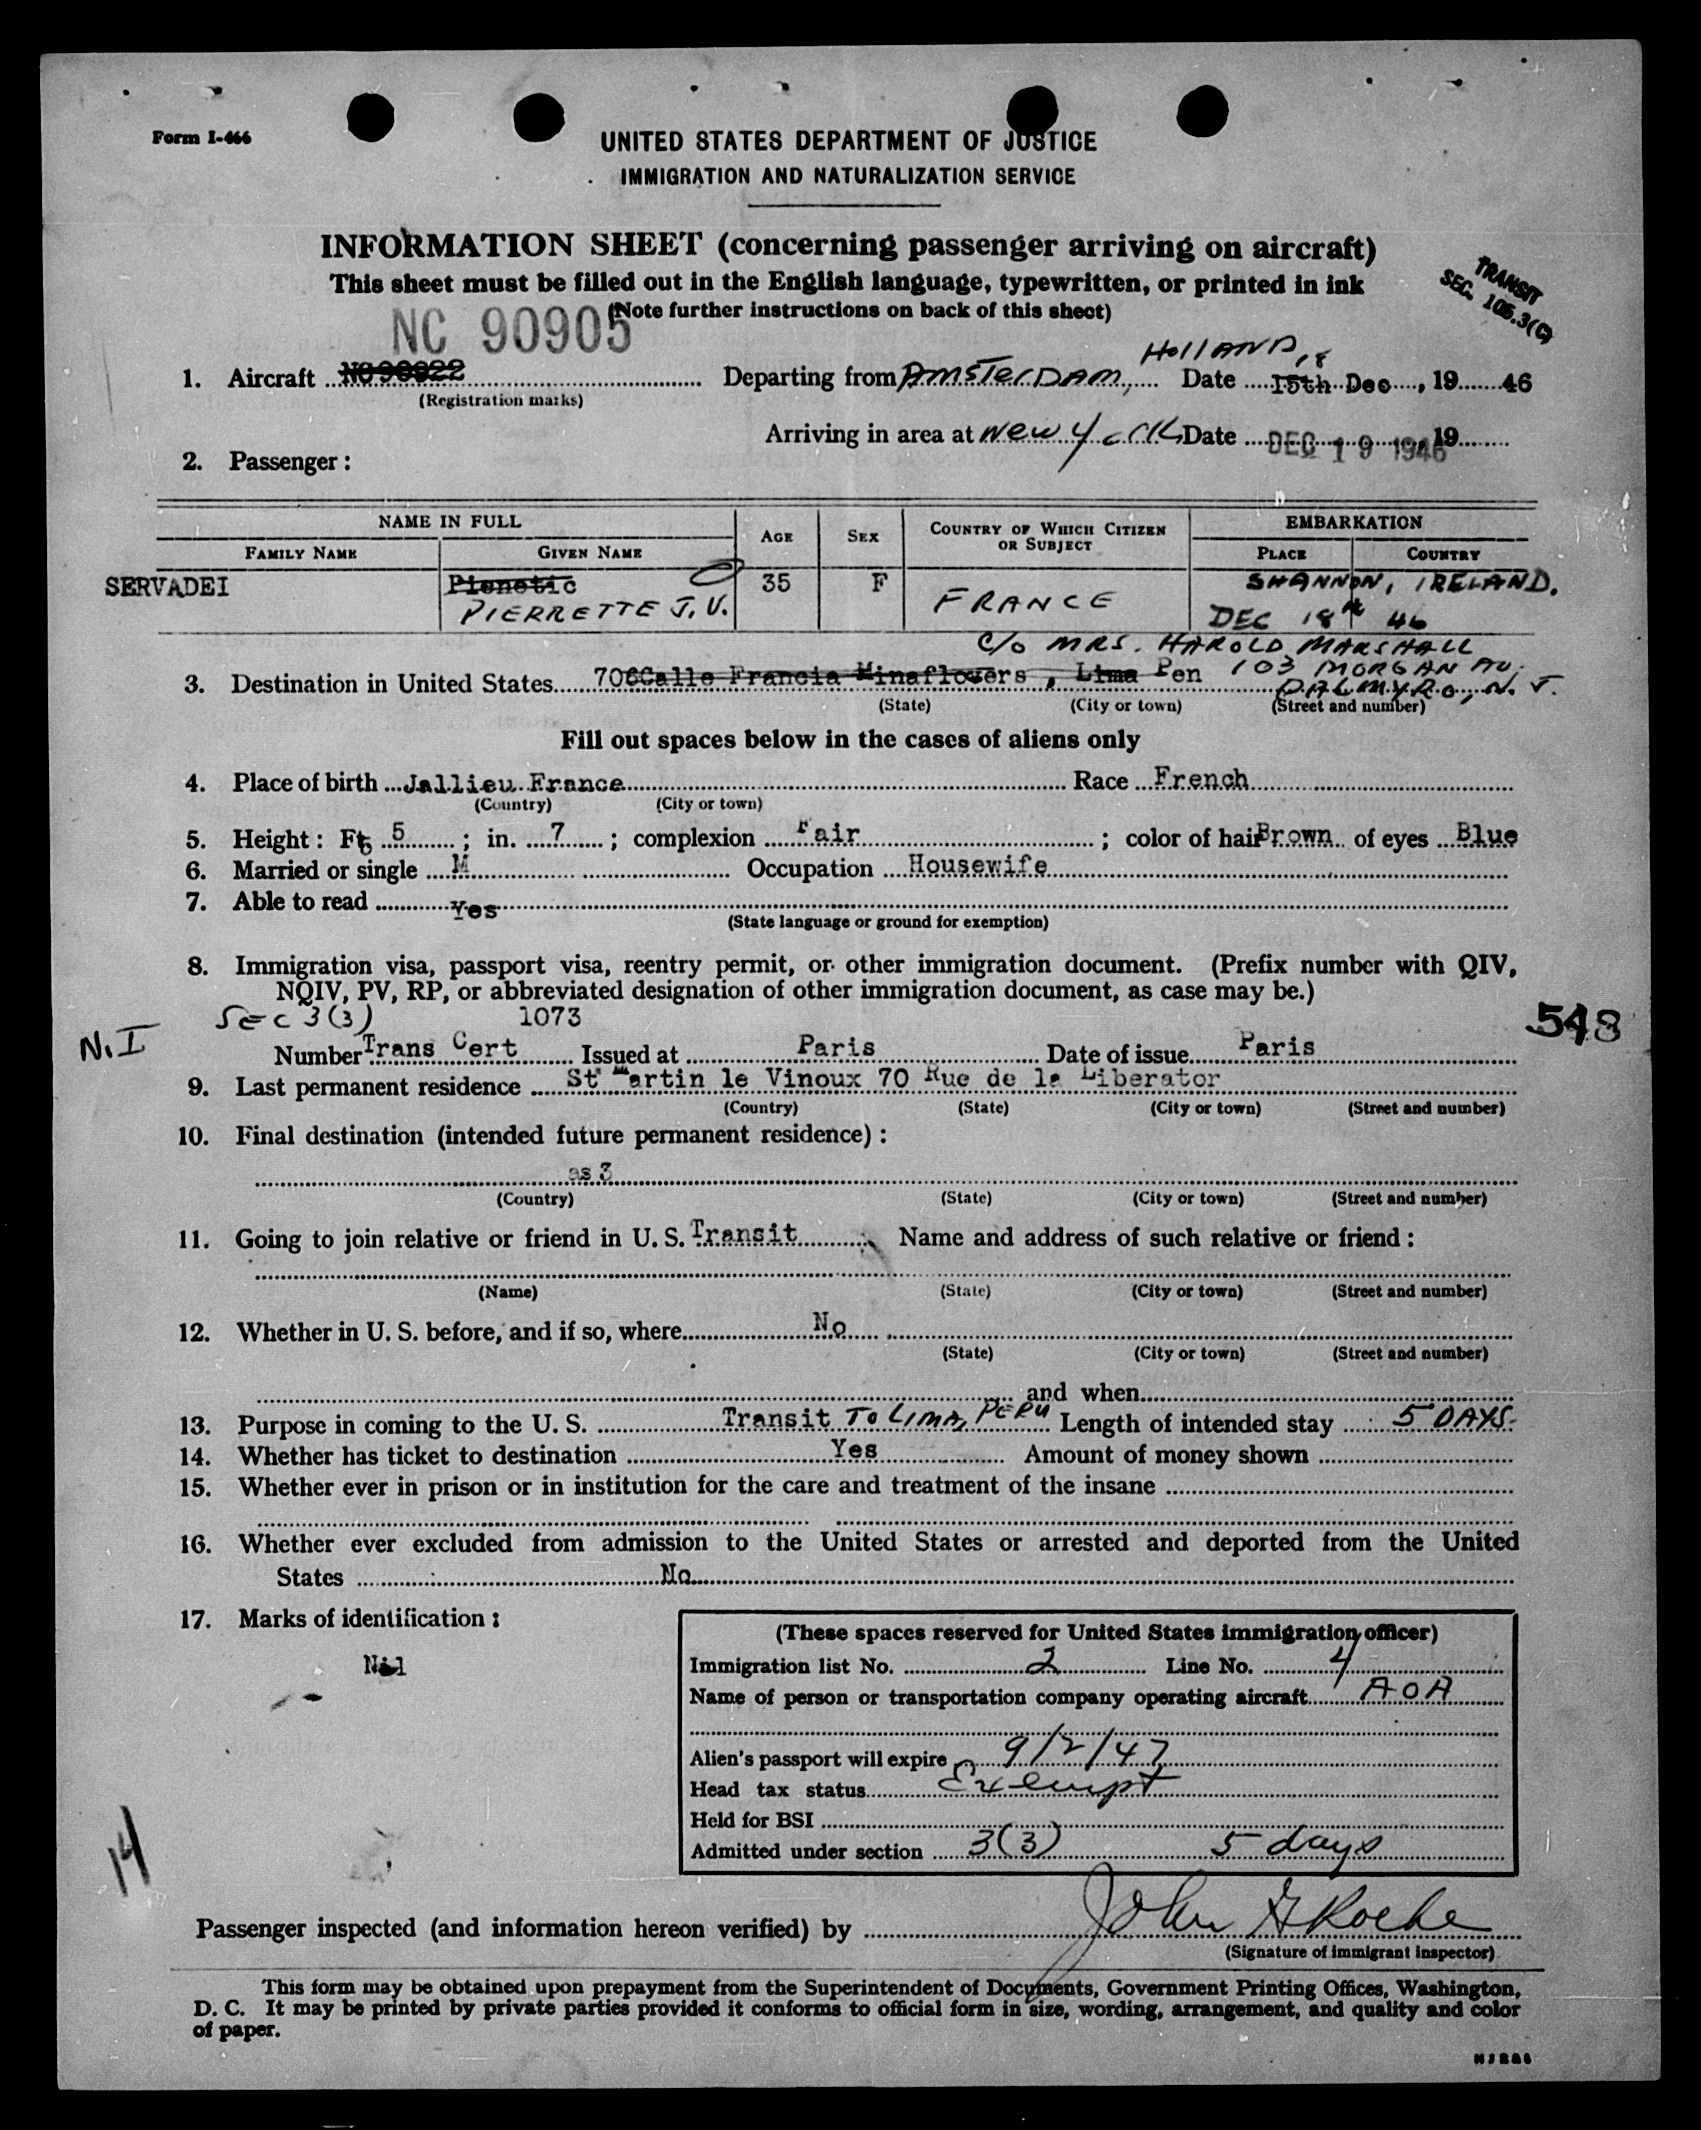 Form I-466
UNITED STATES DEPARTMENT OF JUSTICE
IMMIGRATION AND NATURALIZATION SERVICE
INFORMATION SHEET (concerning passenger arriving on aircraft)
This sheet must be filled out in the English language, typewritten, or printed in ink
(Note further instructions on back of this sheet)
TRANSIT
SEC. 105.3(C)
NC 90905
HOLLAND, 18
1. Aircraft NC90922 Departing from AMSTERDAM, Date 15th Dec, 19 46
(Registration marks)
Arriving in area at New York Date DEC 19 1946 19
2. Passenger:
NAME IN FULL AGE SEX COUNTRY OF WHICH CITIZEN OR SUBJECT EMBARKATION
FAMILY NAME GIVEN NAME PLACE COUNTRY
SERVADEI Pienetic 35 F FRANCE SHANNON, IRELAND.
PIERRETTE J.V. DEC 18th 46
C/O MRS. HAROLD MARSHALL
3. Destination in United States 706Calle Francia Minaflowers, Lima Pen 103 MORGAN AV.
PALMYRA, N.J.
(State) (City or town) (Street and number)
Fill out spaces below in the cases of aliens only
4. Place of birth Jallieu France Race French
(Country) (City or town)
5. Height: Ft. 5 ; in. 7 ; complexion Fair ; color of hair Brown of eyes Blue
6. Married or single M Occupation Housewife
7. Able to read Yes
(State language or ground for exemption)
8. Immigration visa, passport visa, reentry permit, or other immigration document. (Prefix number with QIV,
NQIV, PV, RP, or abbreviated designation of other immigration document, as case may be.)
Sec 3(3) 1073 548
N.I Number Trans Cert Issued at Paris Date of issue Paris
9. Last permanent residence St Martin le Vinoux 70 Rue de la Liberator
(Country) (State) (City or town) (Street and number)
10. Final destination (intended future permanent residence):
as 3
(Country) (State) (City or town) (Street and number)
11. Going to join relative or friend in U. S. Transit Name and address of such relative or friend:
(Name) (State) (City or town) (Street and number)
12. Whether in U. S. before, and if so, where No
(State) (City or town) (Street and number)
and when
13. Purpose in coming to the U. S. Transit TO LIMA, PERU Length of intended stay 5 DAYS.
14. Whether has ticket to destination Yes Amount of money shown
15. Whether ever in prison or in institution for the care and treatment of the insane
16. Whether ever excluded from admission to the United States or arrested and deported from the United
States No
17. Marks of identification:
Nil
(These spaces reserved for United States immigration officer)
Immigration list No. 2 Line No. 4
Name of person or transportation company operating aircraft AOA
Alien's passport will expire 9/2/47
Head tax status Exempt
Held for BSI
Admitted under section 3(3) 5 days
14
Passenger inspected (and information hereon verified) by John G Roche
(Signature of immigrant inspector)
This form may be obtained upon prepayment from the Superintendent of Documents, Government Printing Offices, Washington,
D. C. It may be printed by private parties provided it conforms to official form in size, wording, arrangement, and quality and color
of paper.